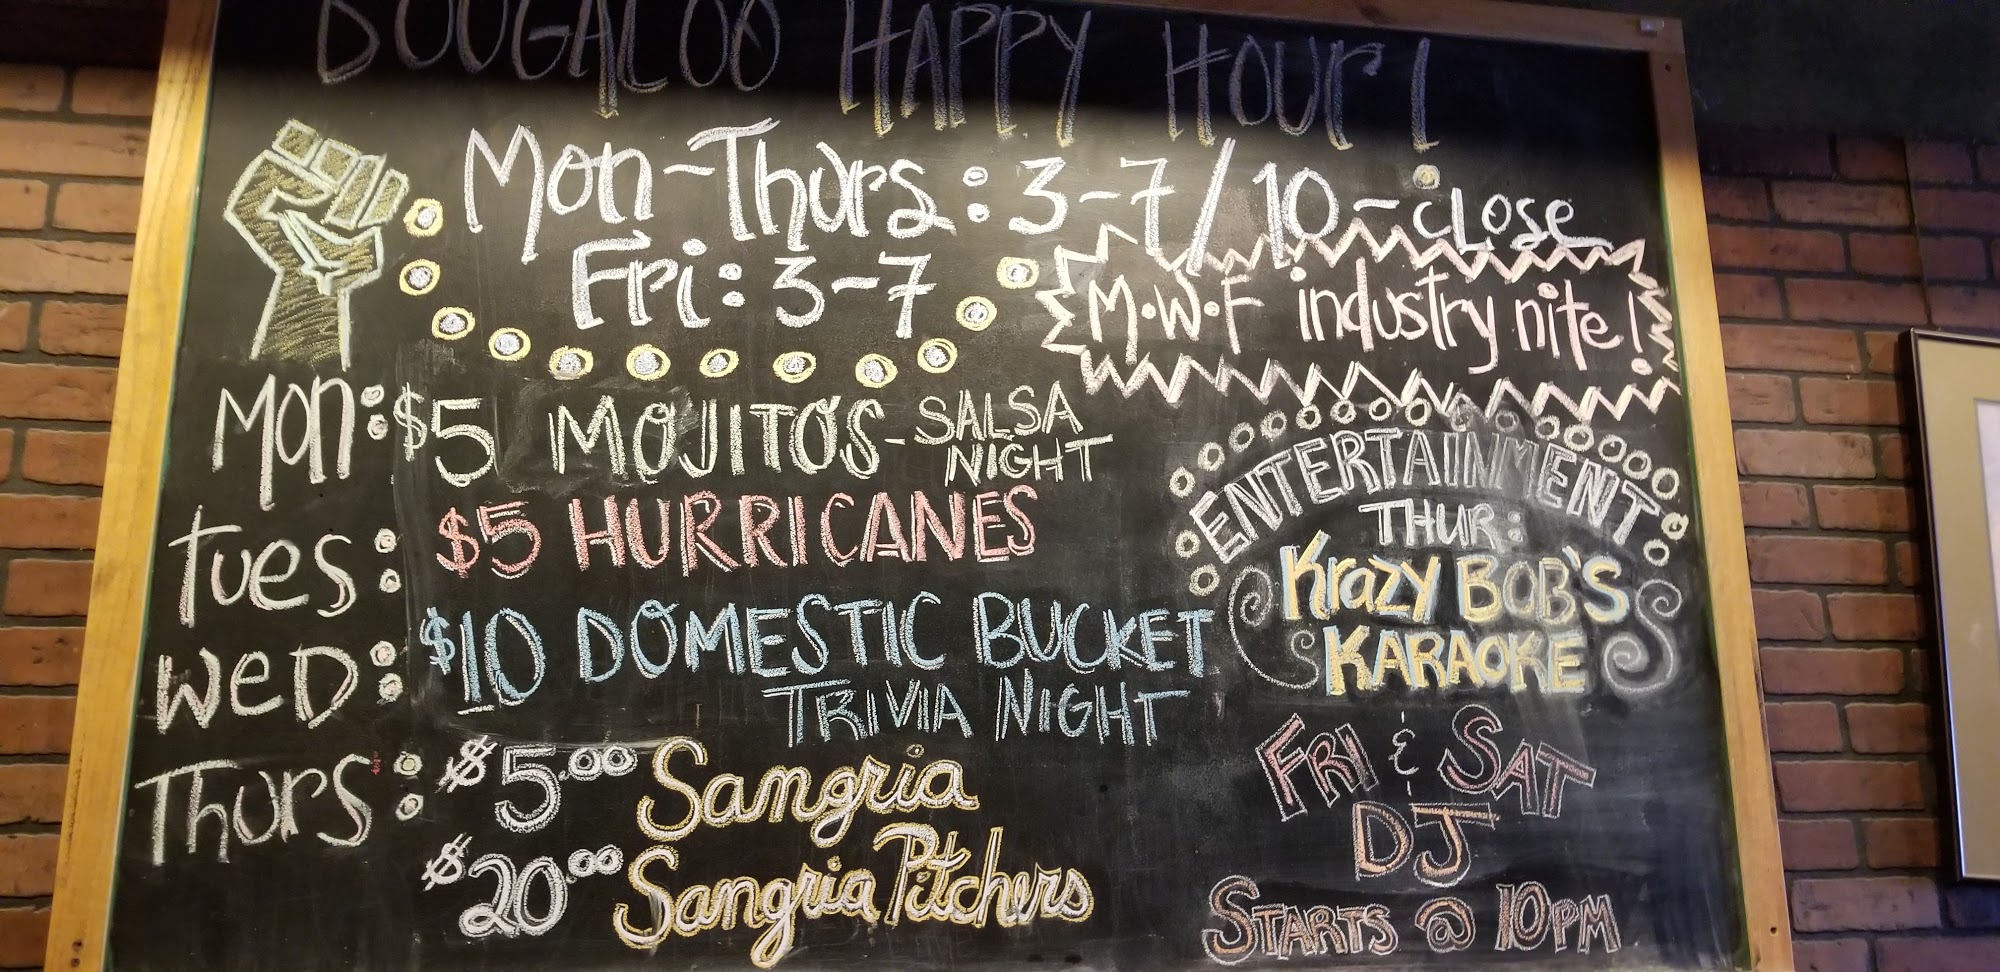 DOUGALOO HAPPY HOUR!
Mon-Thurs: 3-7/10-close
Fri: 3-7
M·W·F industry nite!
Mon: $5 MOJITO'S - SALSA NIGHT
Tues: $5 HURRICANES
WeD: $10 DOMESTIC BUCKET
TRIVIA NIGHT
Thurs: $5.00 Sangria
$20.00 Sangria Pitchers
ENTERTAINMENT
THUR:
Krazy BOB'S
KARAOKE
FRI & SAT
DJ
STARTS @ 10PM